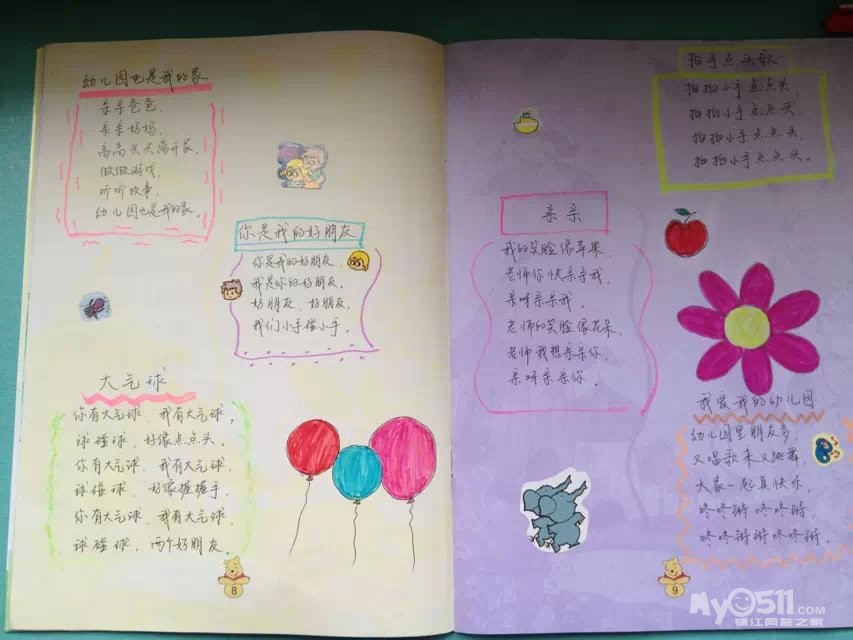 幼儿园也是我的家
亲亲爸爸，
亲亲妈妈，
高高兴兴离开家，
做做游戏，
听听故事，
幼儿园也是我的家。
你是我的好朋友
你是我的好朋友，
我是你的好朋友，
好朋友，好朋友，
我们小手搭小手。
大气球
你有大气球，我有大气球，
球碰球，好像点点头。
你有大气球，我有大气球，
球碰球，好像握握手。
你有大气球，我有大气球，
球碰球，两个好朋友。
8
拍手点头歌
拍拍小手点点头，
拍拍小手点点头，
拍拍小手点点头，
拍拍小手点点头。
亲亲
我的笑脸像苹果，
老师你快亲亲我，
亲呀亲亲我。
老师的笑脸像花朵，
老师我想亲亲你，
亲呀亲亲你。
我爱我的幼儿园
幼儿园里朋友多，
又唱歌来又跳舞，
大家一起真快乐，
咚咚锵咚咚锵，
咚咚锵锵咚咚锵。
9
My0511.COM
镇江网友之家